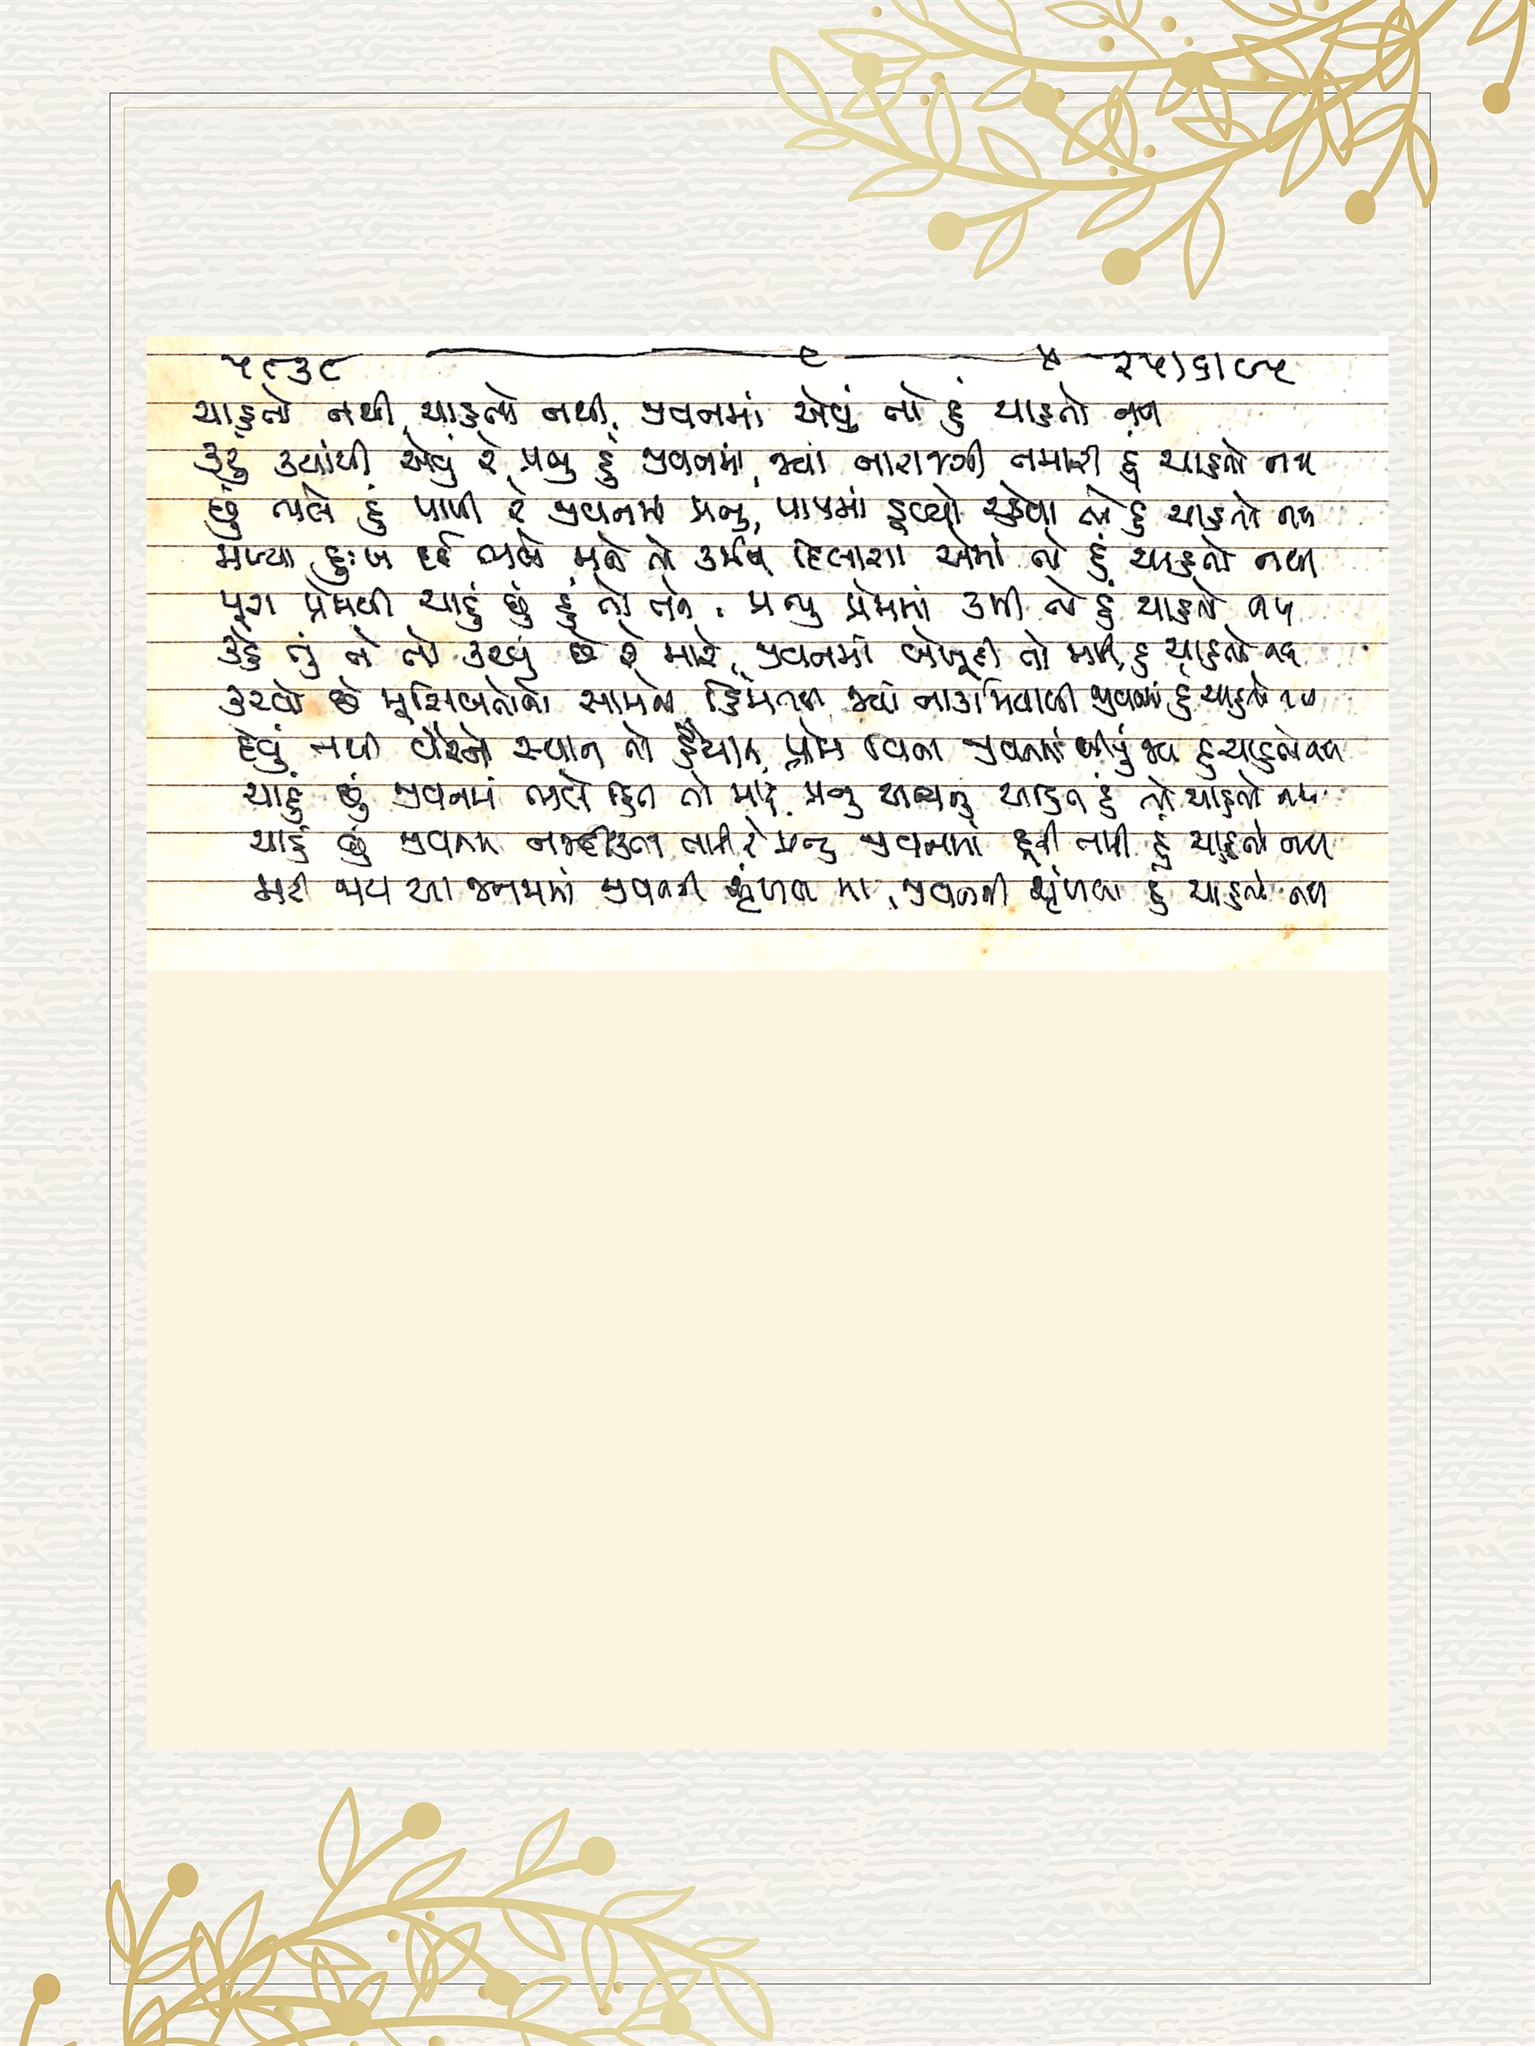 ૫૮૩૮ ૨૫/૬/૯૫
ચાહતો નથી, ચાહતો નથી, જીવનમાં એવું તો હું ચાહતો નથી
કરું ક્યાંથી એવું રે પ્રભુ હું જીવનમાં, જ્યાં નારાજગી તમારી હું ચાહતો નથી
છું ભલે હું પાપી રે જીવનમાં પ્રભુ, પાપમાં ડૂબ્યો રહેવા તો હું ચાહતો નથી
મળ્યા દુઃખ દર્દ ભલે મને તો દિલાસા એમાં તો હું ચાહતો નથી
પૂરા પ્રેમથી ચાહું છું હું તો તને, પ્રભુ પ્રેમમાં કમી તો હું ચાહતો નથી
કહે તું તે તો કરવું છે રે મારે, જીવનમાં બેખૂદી તો મારી હું ચાહતો નથી
કરવો છે મુસિબતોનો સામનો હિંમતથી, જ્યાં નાકામિયાબી જીવનમાં હું ચાહતો નથી
દેવું નથી વૈરને સ્થાન તો હૈયામાં, પ્રેમ વિના જીવનમાં બીજું જ્યાં હું ચાહતો નથી
ચાહું છું જીવનમાં ભલે હિત તો મારું, પ્રભુ અન્યનું અહિત હું તો ચાહતો નથી
ચાહું છું જીવનમાં નજદીકતા તારી રે પ્રભુ જીવનમાં દૂરી તારી હું ચાહતો નથી
મટી જાય આ જનમમાં જીવનની શૃંખલા મારી, જીવનની શૃંખલા હું ચાહતો નથી